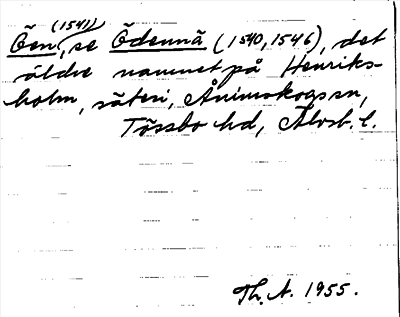 (1541)
Öen, se Ödennä (1540, 1546), det
äldre namnet på Henriks-
holm, säteri, Ånimskogs sn,
Tössbo hd, Älvsb. l.
Th. A. 1955.